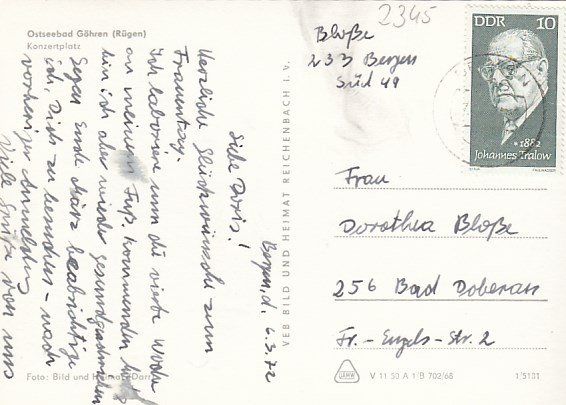 Ostseebad Göhren (Rügen)
Konzertplatz
Bergen, d. 6.3.72
Liebe Doris!
Herzliche Glückwünsche zum
Frauentag.
Ich laboriere um die vierte Woche
an meinem Fuß. Kommenden
bin ich aber wieder gesundgeschrieben
Gegen Ende März beabsichtige
ich, Dich zu besuchen - nach
vorheriger Anmeldung
Viele Grüße von uns
Foto: Bild und Heimat Darr
VEB BILD UND HEIMAT REICHENBACH I. V.
2345
Bloße
233 Bergen
Süd 49
DDR 10
* 1882
Johannes Tralow
Frau
Dorothea Bloße
256 Bad Doberan
Fr.-Engels-Str. 2
V 11 50 A 1/B 702/68
1/5101